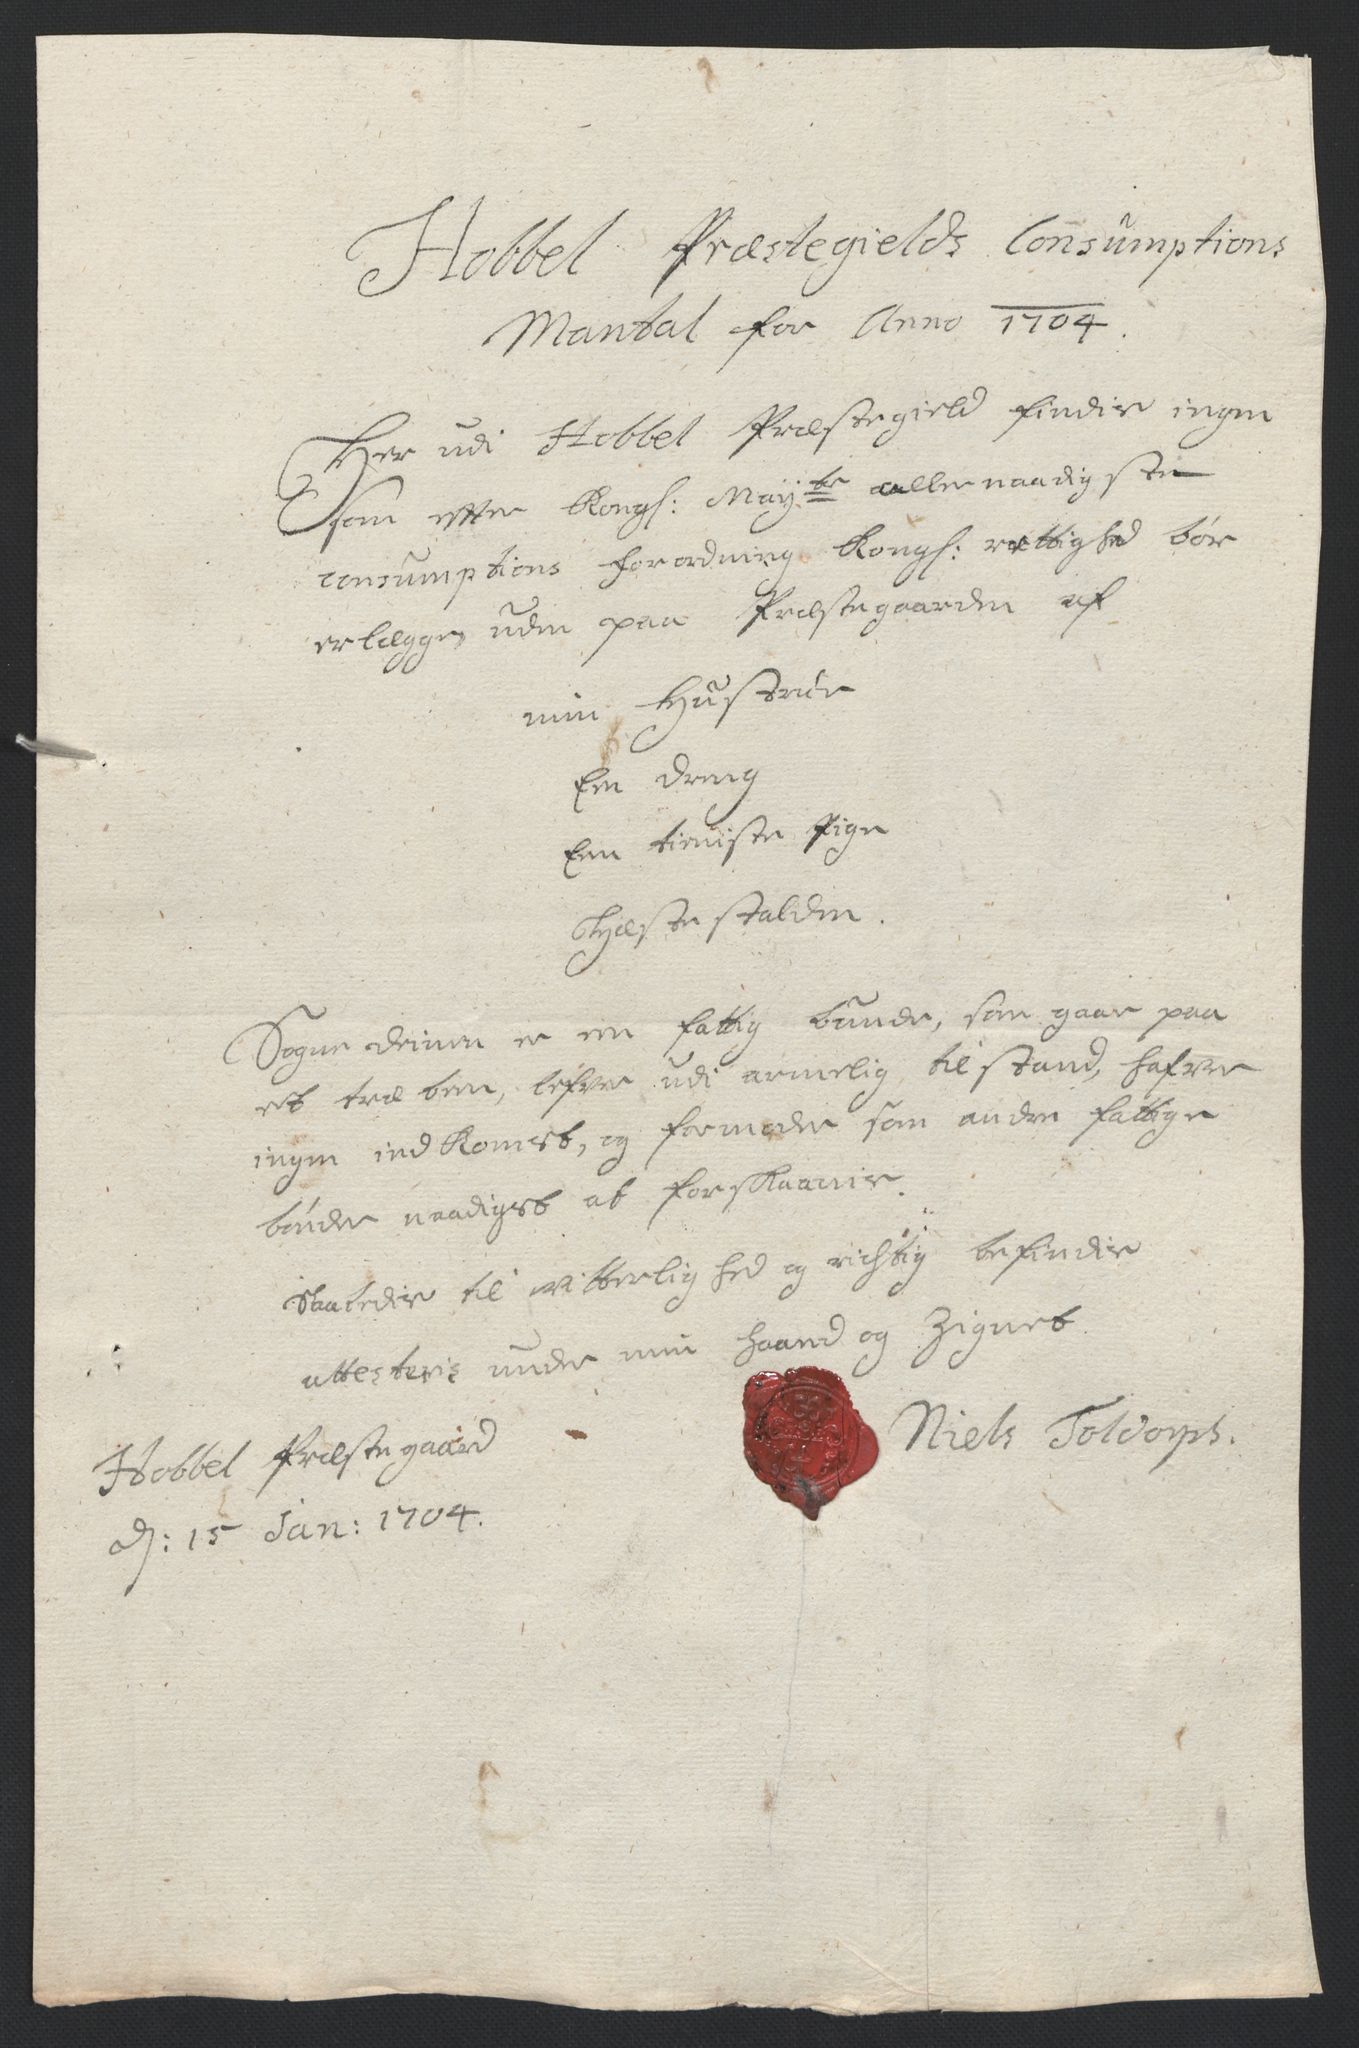 Hobbel Præstegields Consumptions
Mantal for Anno 1704.
Her udi Hobbel Præstegield findis ingen
som efter Kongl: May:ts allernaadigste
consumptions forordning Kongl: rettighed bör
erlægge, uden paa Præstegaarden af
min Hustrue
Een dreng
Een tieniste Pige
Hæste stalden.
Sogne deinen er en fattig bunde, som gaar paa
et træ been, lefver udi armelig tilstand, hafver
ingen indkomst, og formoder som andre fattige
bönder naadigst at forskaanis.
Saaledis til vitterlighed og richtig befindis
attesteris under min haand og Zignet
Niels Toldorph.
Hobbel Præstegaard
d: 15 Jan: 1704.